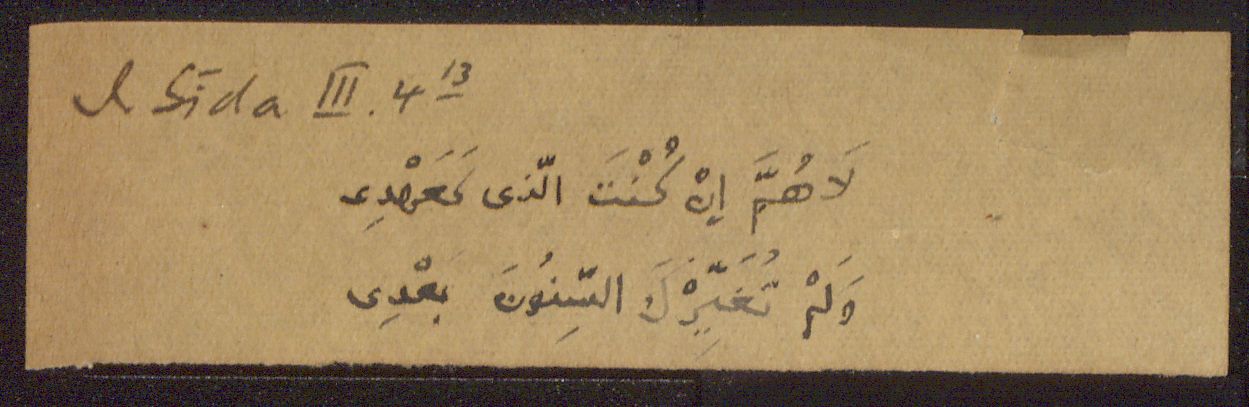 I Sīda III. 4 13
لَاهُمَّ إنْ كُنْتَ الّذى كَعَهْدِى
وَلَمْ تُغَيِّرْكَ السِّنُونَ بَعْدِى